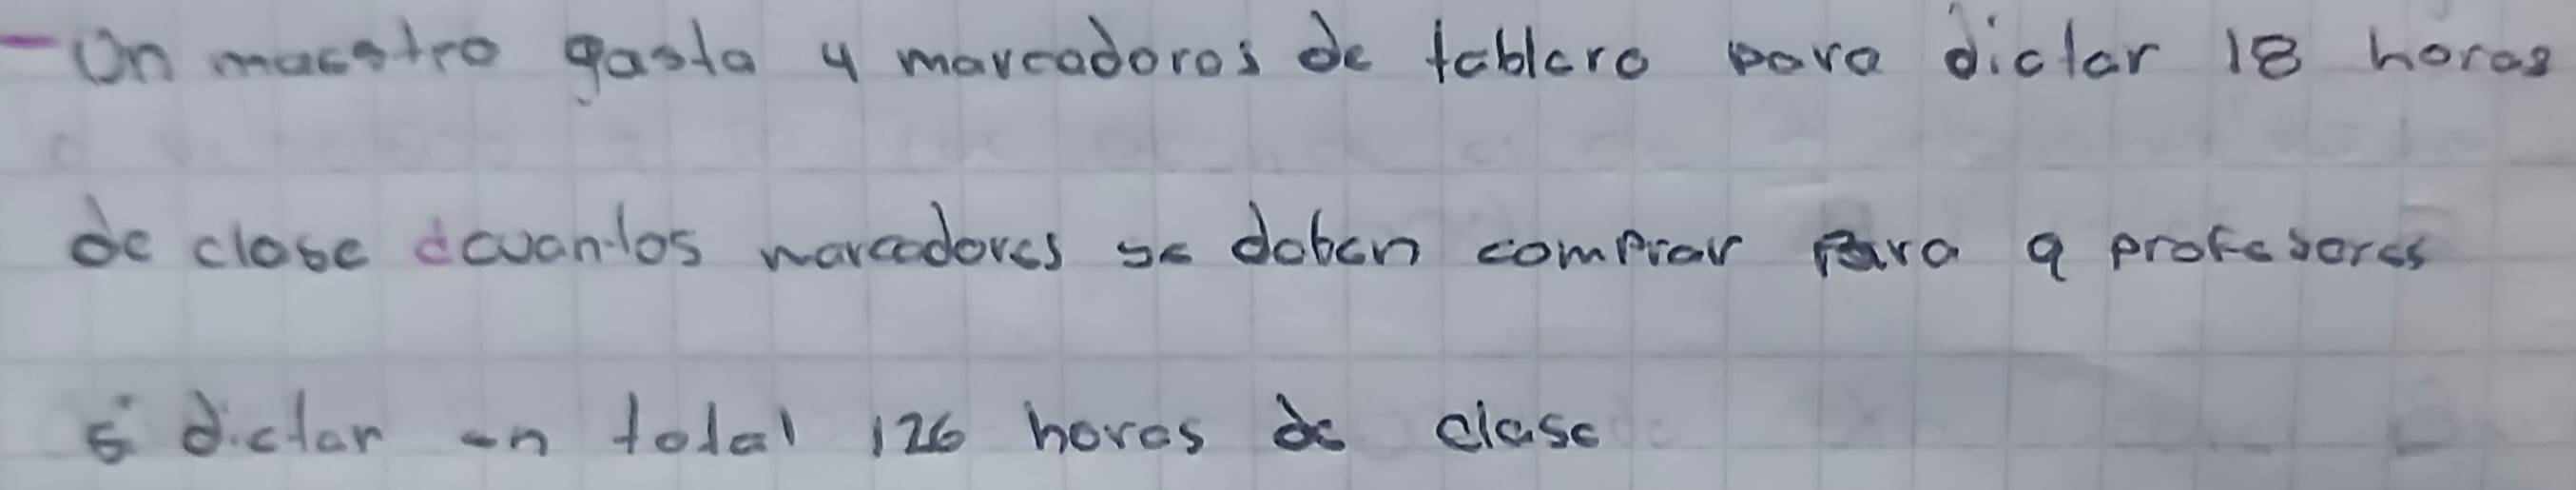 - Un maestro gasta 4 marcadores de tablero para dictar 18 horas
de clase cuantos marcadores se deben comprar para 9 profesores
si dictan en total 126 horas de clase